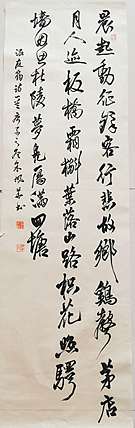 晨起動征鐸客行悲故鄉鷄聲茅店
月人迹板橋霜槲葉落山路枳花照驛
墻因思杜陵夢鳧雁滿回塘